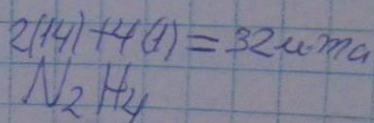 2(14)+4(1)=32uma
N₂H₄